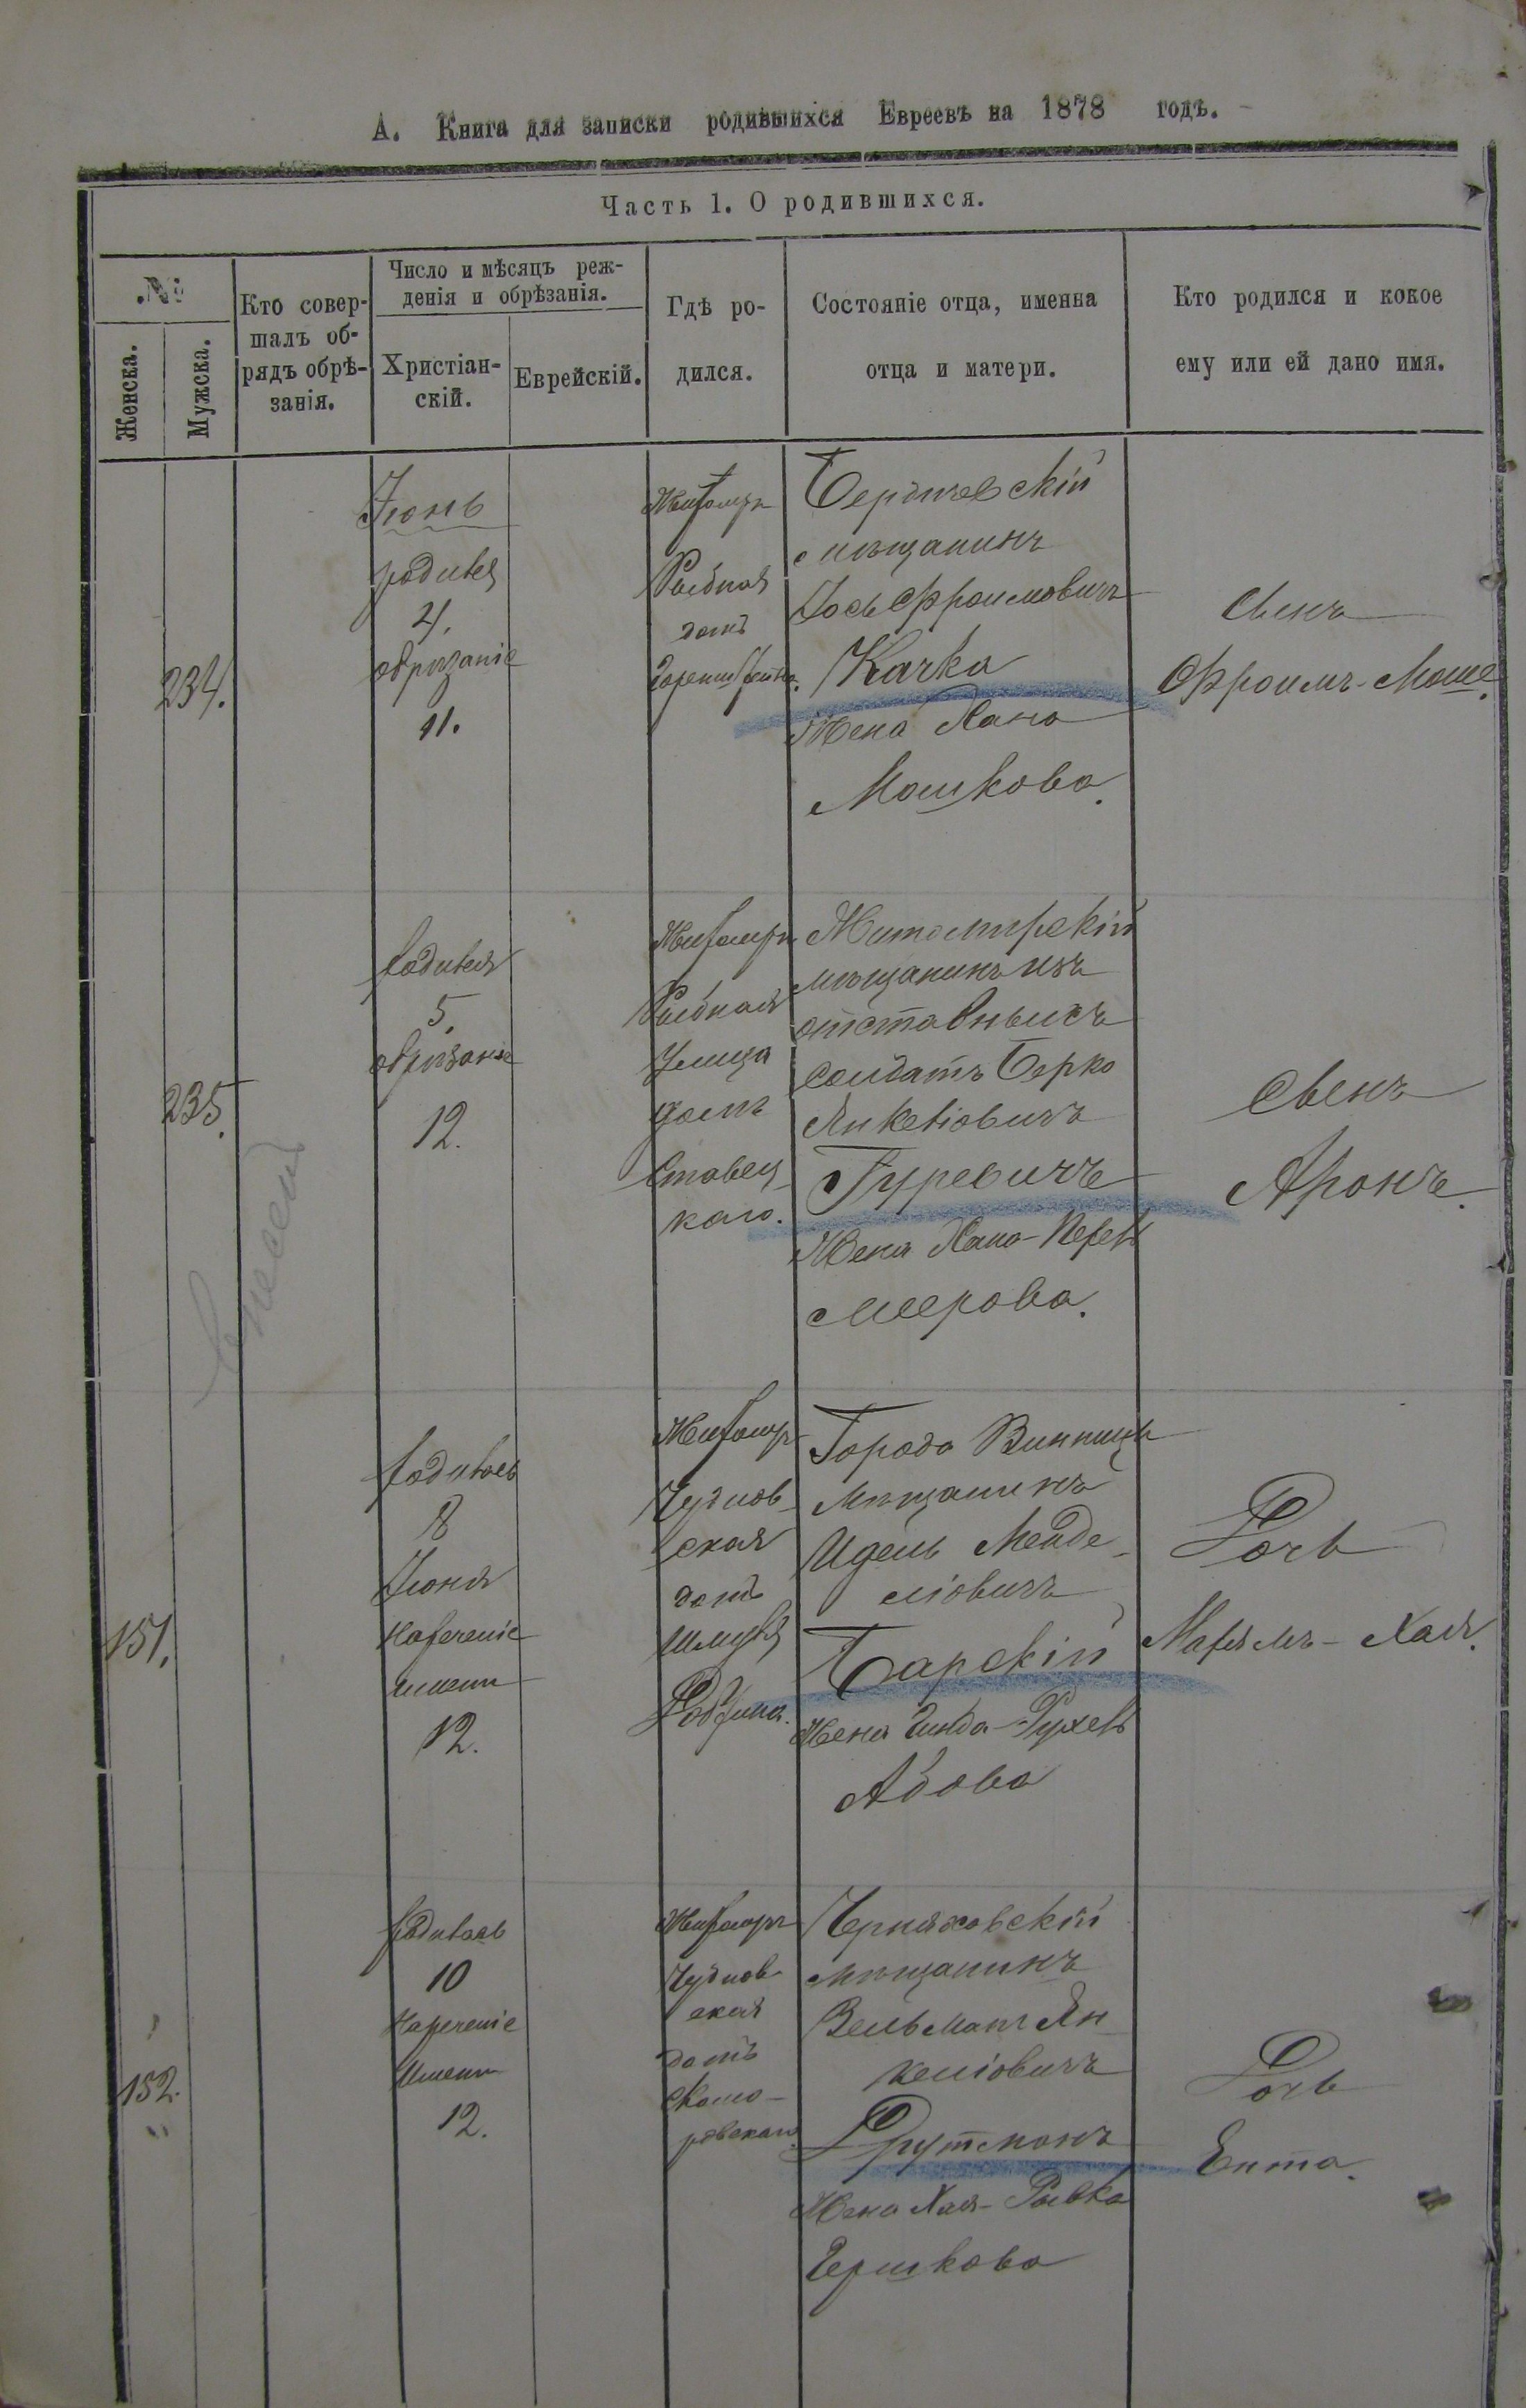 А. Книга для записки родившихся Евреевъ на 1878 годъ.
Часть 1. О родившихся.
№
Женска.
Мужска.
Кто совер-
шалъ об-
рядъ обрѣ-
занія.
Число и мѣсяцъ реж-
денія и обрѣзанія.
Христіан-
скій.
Еврейскій.
Гдѣ ро-
дился.
Состояніе отца, именна
отца и матери.
Кто родился и кокое
ему или ей дано имя.
234.
Іюнь
родився
4.
обрѣзаніе
11.
Житомиръ
Рыбная
домъ
Бердичевскій
мѣщанинъ
Іось Фроимовичъ
Качка
Жена Хана
Мошкова.
Сынъ
Фроимъ-Моше.
235.
родився
5.
обрѣзаніе
12.
Житомиръ
Рыбная
Улица
домъ
Ставец-
каго.
Житомирскій
мѣщанинъ изъ
отставныхъ
солдатъ Берко
Янкеліовичъ
Гуревичъ
Жена Хана-Перель
Меерова.
Сынъ
Аронъ.
Внесенъ
151.
родилась
8
Іюня
Нареченіе
имени
12.
Житомиръ
Чуднов-
ская
домъ
Шмуля
Города Винницы
Мѣщанинъ
Идель Менде-
ліовичъ
Барскій
Жена Гинда-Рухель
Абова
Дочь
Марямъ-Хая.
152.
родилась
10
Нареченіе
Имени
12.
Житомиръ
Чуднов-
ская
домъ
Скомо-
ровскаго.
Черняховскій
мѣщанинъ
Зельманъ Ян-
келіовичъ
Друтманъ
Жена Хая-Рывка
Гершкова
Дочь
Ента.